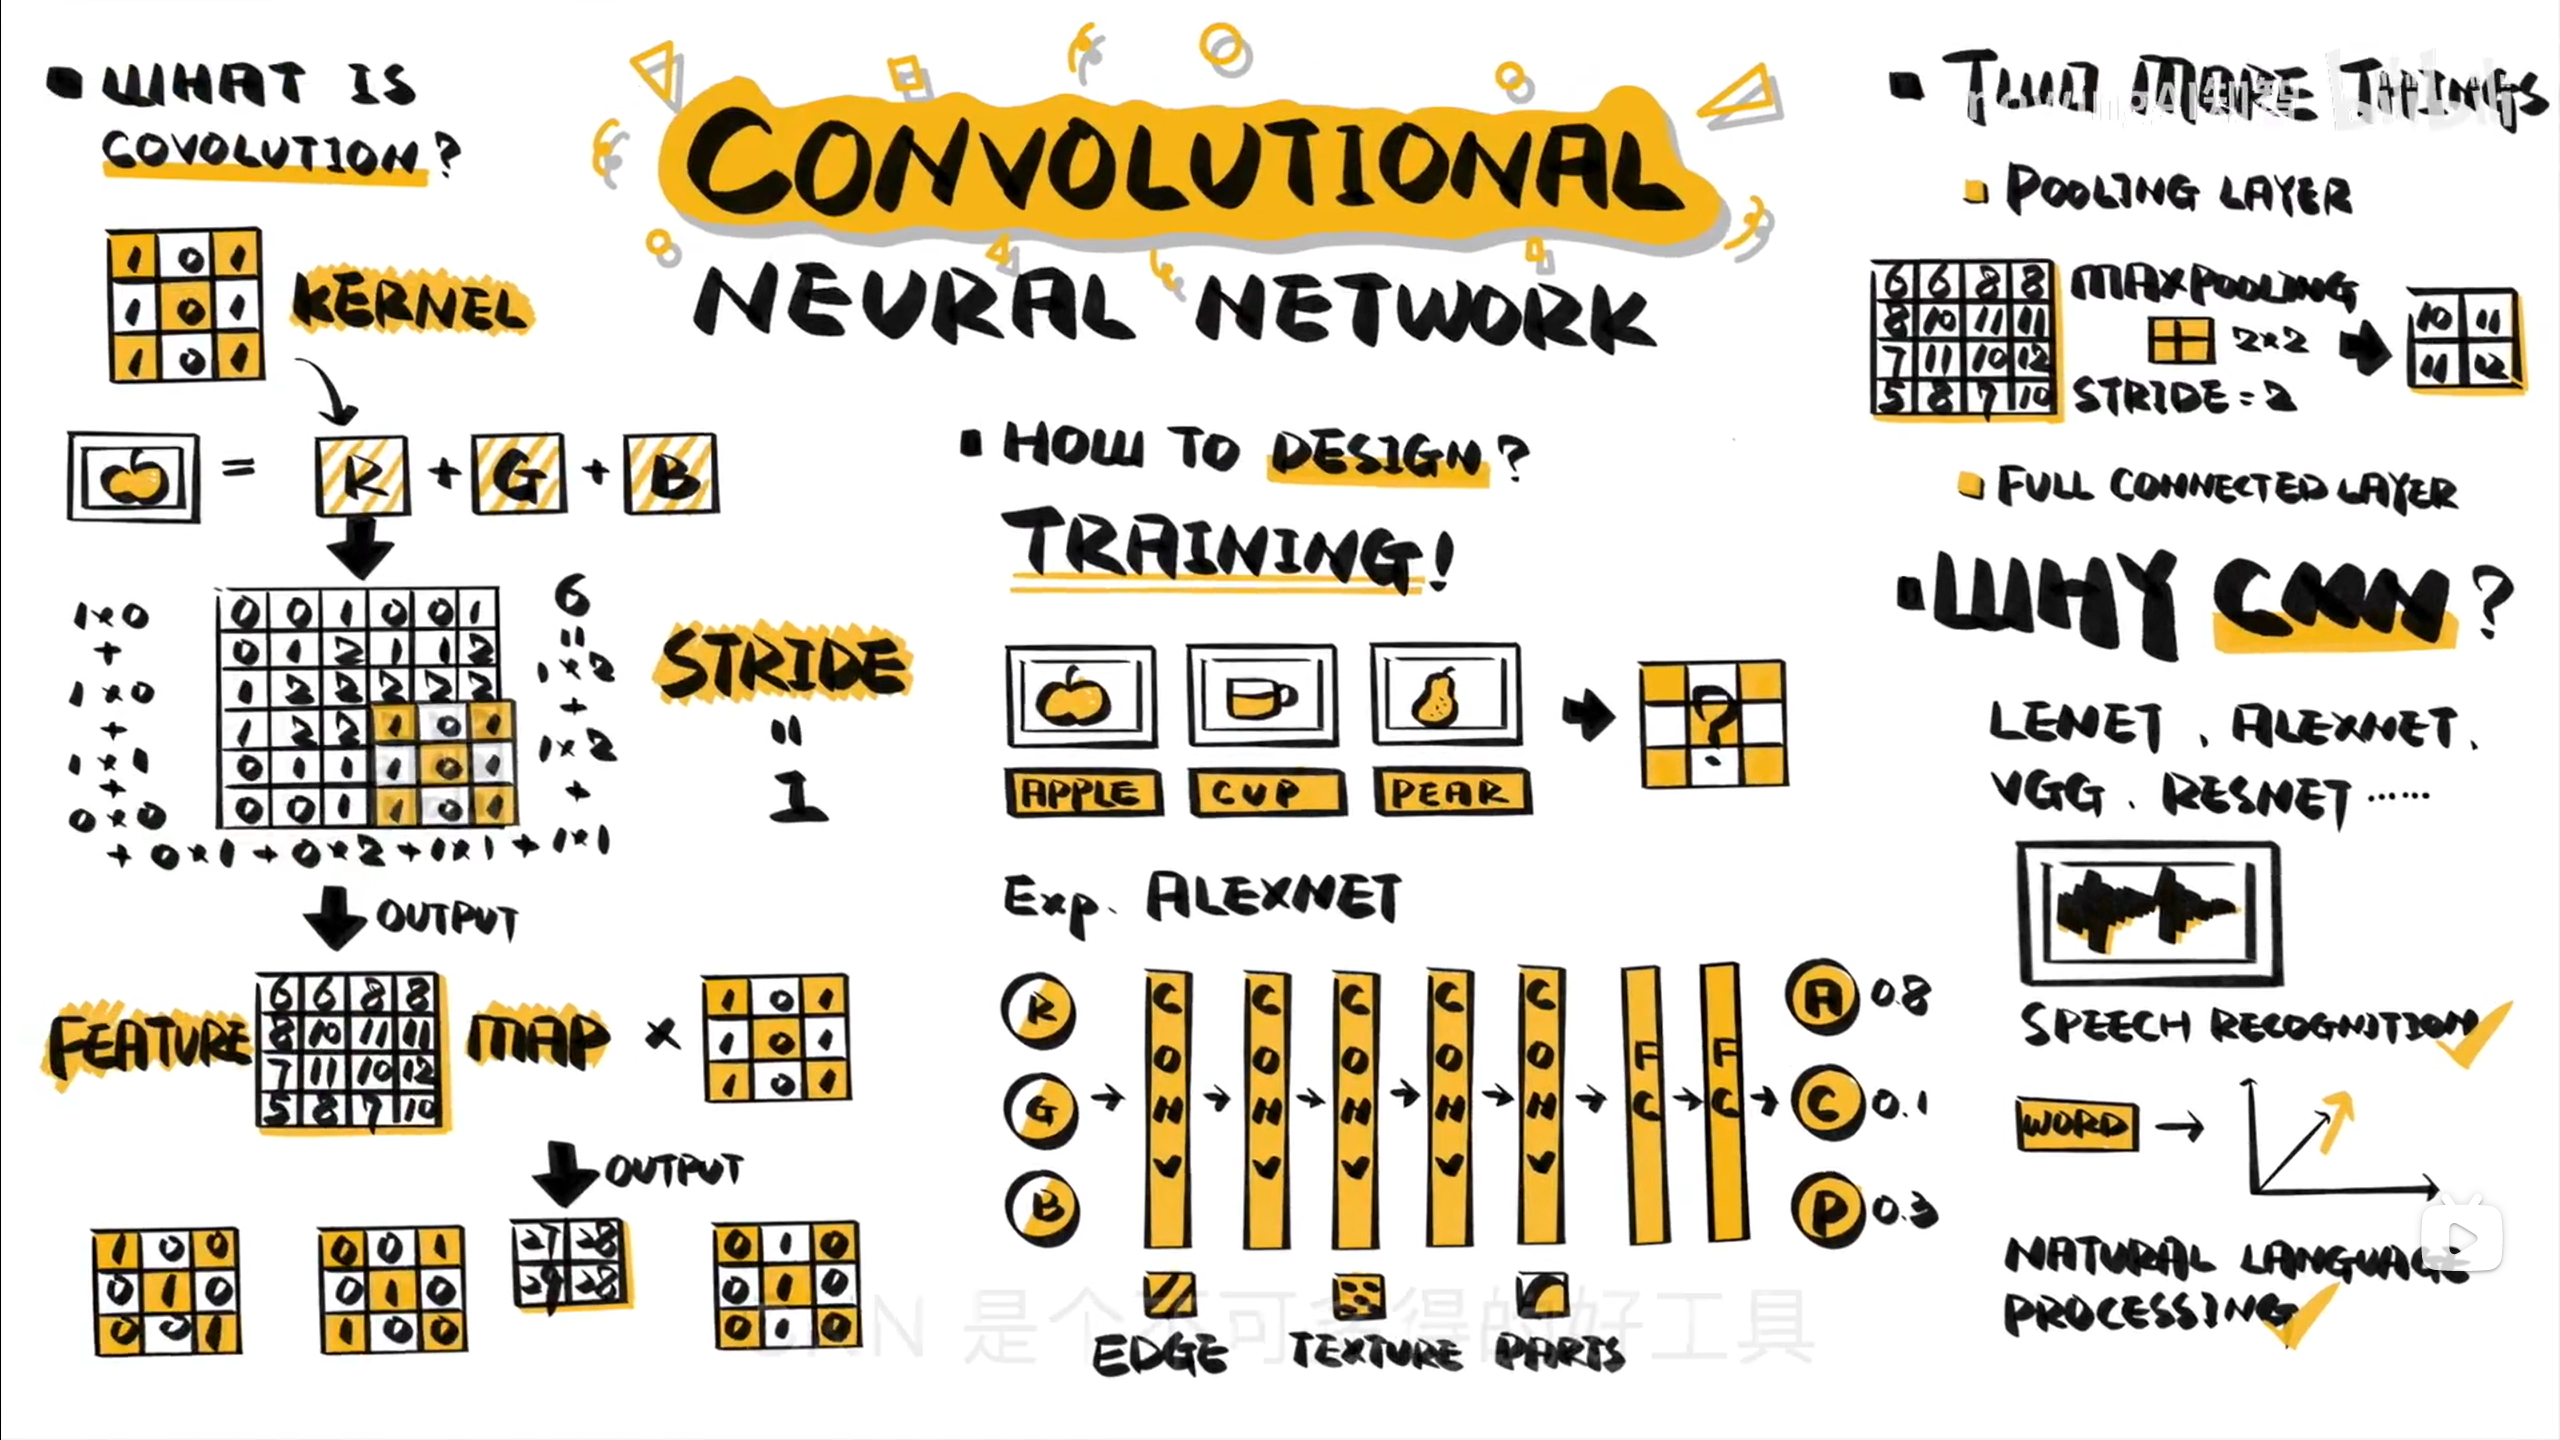 WHAT IS
COVOLUTION?
1 0 1
1 0 1
1 0 1
KERNEL
= R + G + B
1×0
+
1×0
+
1×1
+
0×0
+ 0×1 + 0×2 + 1×1 + 1×1
0 0 1 0 0 1
0 1 2 1 1 2
1 2 2 2 2 2
1 2 2 1 0 1
0 1 1 1 0 1
0 0 1 1 0 1
6
=
1×2
+
1×2
+
STRIDE
=
1
OUTPUT
FEATURE
6 6 8 8
8 10 11 11
7 11 10 12
5 8 7 10
MAP
×
1 0 1
1 0 1
1 0 1
OUTPUT
1 0 0
0 1 0
0 0 1
0 0 1
0 1 0
1 0 0
27 28
29 28
0 1 0
0 1 0
0 1 0
CONVOLUTIONAL
NEURAL NETWORK
HOW TO DESIGN?
TRAINING!
APPLE CUP PEAR
?
Exp. ALEXNET
R
G
B
CONV CONV CONV CONV CONV FC FC
A 0.8
C 0.1
P 0.3
EDGE TEXTURE PARTS
CNN 是个不可多得的好工具
TWO MORE THINGS
bilibili
POOLING LAYER
6 6 8 8
8 10 11 11
7 11 10 12
5 8 7 10
MAXPOOLING
2×2
STRIDE = 2
10 11
11 12
FULL CONNECTED LAYER
WHY CNN?
LENET、ALEXNET、
VGG、RESNET ......
SPEECH RECOGNITION
WORD
NATURAL LANGUAGE
PROCESSING